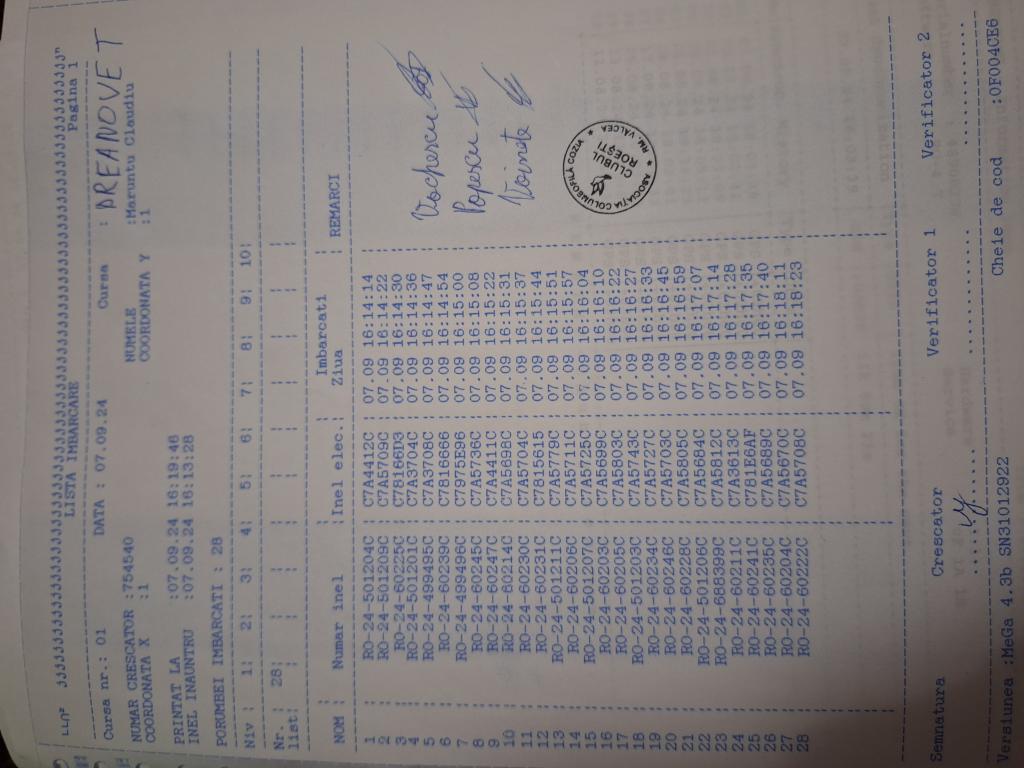 LISTA IMBARCARE
Pagina 1
Cursa nr.: 01 DATA : 07.09.24 Cursa : DREANOVET
NUMAR CRESCATOR :754540 NUMELE :Maruntu Claudiu
COORDONATA X :1 COORDONATA Y :1
PRINTAT LA :07.09.24 16:19:46
INEL INAUNTRU :07.09.24 16:13:28
PORUMBEI IMBARCATI : 28
Niv : 1: 2: 3: 4: 5: 6: 7: 8: 9: 10:
Nr. : 28:
list:
Imbarcati
NOM : Numar inel :Inel elec.: Ziua : REMARCI
1 : RO-24-501204C : C7A4412C : 07.09 16:14:14 :
2 : RO-24-501209C : C7A5709C : 07.09 16:14:22 :
3 : RO-24-60225C : C78166D3 : 07.09 16:14:30 :
4 : RO-24-501201C : C7A3704C : 07.09 16:14:36 :
5 : RO-24-499495C : C7A3708C : 07.09 16:14:47 :
6 : RO-24-60239C : C7816666 : 07.09 16:14:54 :
7 : RO-24-499496C : C7975E96 : 07.09 16:15:00 :
8 : RO-24-60245C : C7A5736C : 07.09 16:15:08 :
9 : RO-24-60247C : C7A4411C : 07.09 16:15:22 :
10 : RO-24-60214C : C7A5698C : 07.09 16:15:31 :
11 : RO-24-60230C : C7A5704C : 07.09 16:15:37 :
12 : RO-24-60231C : C7815615 : 07.09 16:15:44 :
13 : RO-24-501211C : C7A5779C : 07.09 16:15:51 :
14 : RO-24-60206C : C7A5711C : 07.09 16:15:57 :
15 : RO-24-501207C : C7A5725C : 07.09 16:16:04 :
16 : RO-24-60203C : C7A5699C : 07.09 16:16:10 :
17 : RO-24-60205C : C7A5803C : 07.09 16:16:22 :
18 : RO-24-501203C : C7A5743C : 07.09 16:16:27 :
19 : RO-24-60234C : C7A5727C : 07.09 16:16:33 :
20 : RO-24-60246C : C7A5703C : 07.09 16:16:45 :
21 : RO-24-60228C : C7A5805C : 07.09 16:16:59 :
22 : RO-24-501206C : C7A5684C : 07.09 16:17:07 :
23 : RO-24-688399C : C7A5812C : 07.09 16:17:14 :
24 : RO-24-60211C : C7A3613C : 07.09 16:17:28 :
25 : RO-24-60241C : C781E6AF : 07.09 16:17:35 :
26 : RO-24-60235C : C7A5689C : 07.09 16:17:40 :
27 : RO-24-60204C : C7A5670C : 07.09 16:18:11 :
28 : RO-24-60222C : C7A5708C : 07.09 16:18:23 :
Popescu
Voinete
ASOCIATIA COLUMBOFILA VIZOO ★ RM. VALCEA ★
CLUBUL
ROEȘTI
Semnatura Crescator Verificator 1 Verificator 2
Versiunea :MeGa 4.3b SN31012922 Cheie de cod :0F004CE6